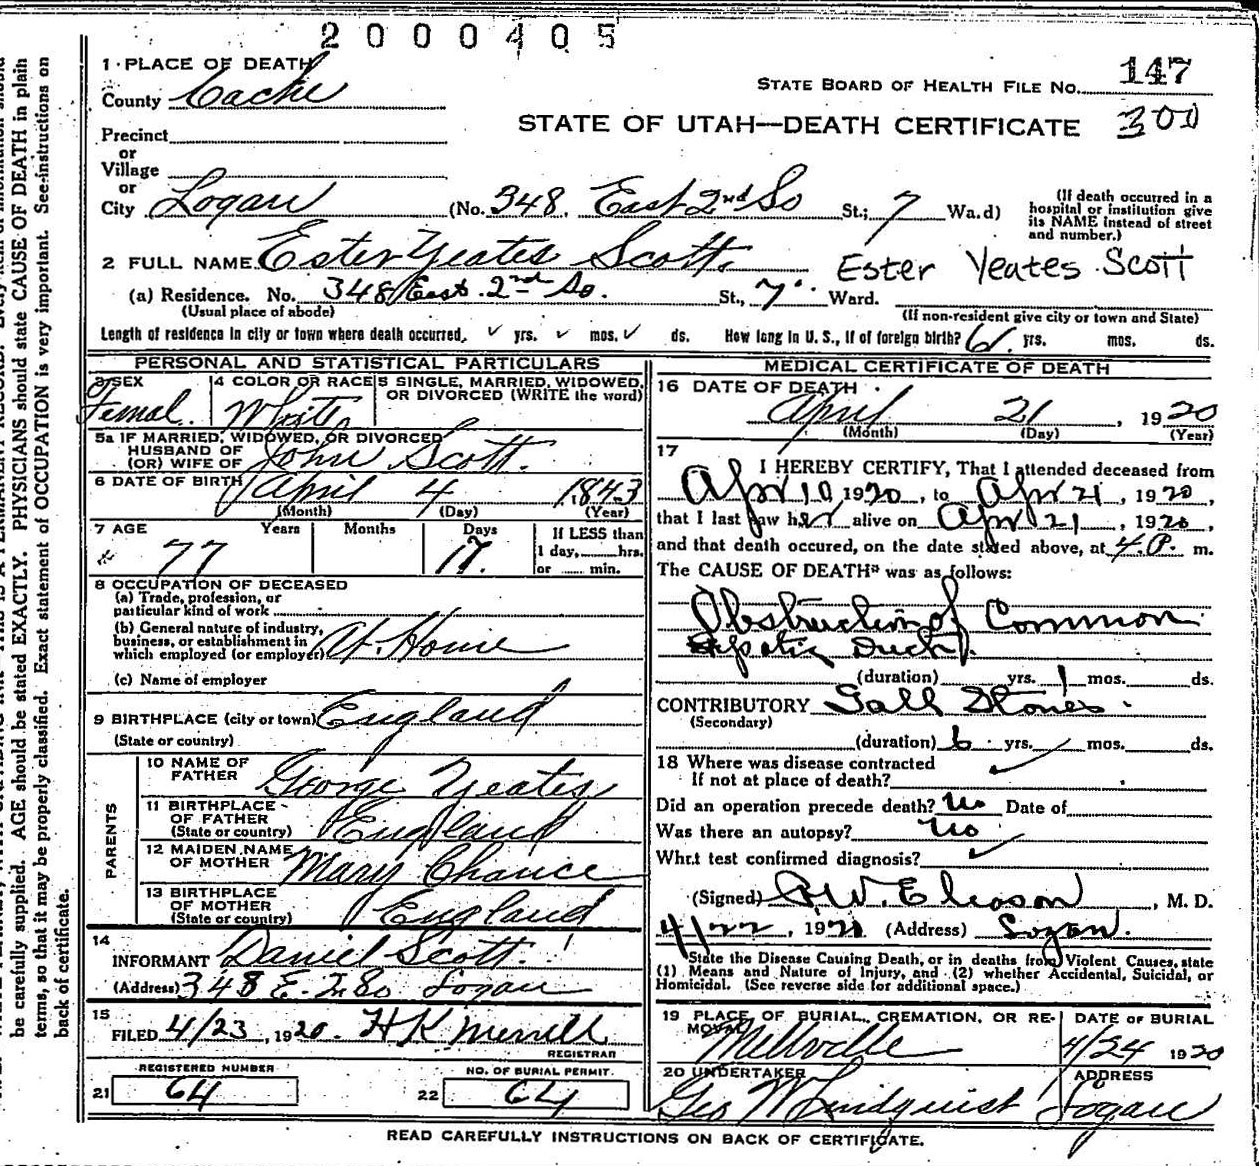 2000405
1 PLACE OF DEATH
County Cache
STATE BOARD OF HEALTH FILE No. 147
STATE OF UTAH—DEATH CERTIFICATE 300
Precinct
or
Village
or
City Logan (No. 348. East 2nd So St.; 7 Wa.d)
(If death occurred in a hospital or institution give its NAME instead of street and number.)
2 FULL NAME Ester Yeates Scott. Ester Yeates Scott
(a) Residence. No. 348 East 2nd So. St., 7 Ward.
(Usual place of abode) (If non-resident give city or town and State)
Length of residence in city or town where death occurred, ✓ yrs. ✓ mos. ✓ ds. How long in U. S., if of foreign birth? yrs. mos. ds.
PERSONAL AND STATISTICAL PARTICULARS
3 SEX Femal. 4 COLOR OR RACE White 5 SINGLE, MARRIED, WIDOWED, OR DIVORCED (WRITE the word)
5a IF MARRIED, WIDOWED, OR DIVORCED
HUSBAND OF
(OR) WIFE OF John Scott.
6 DATE OF BIRTH April 4 1843
(Month) (Day) (Year)
7 AGE Years Months Days If LESS than
77 17. 1 day, hrs.
or min.
8 OCCUPATION OF DECEASED
(a) Trade, profession, or
particular kind of work
(b) General nature of industry,
business, or establishment in
which employed (or employer) At Home
(c) Name of employer
9 BIRTHPLACE (city or town) England
(State or country)
PARENTS
10 NAME OF FATHER George Yeates
11 BIRTHPLACE OF FATHER (State or country) England
12 MAIDEN NAME OF MOTHER Mary Chance
13 BIRTHPLACE OF MOTHER (State or country) England
14
INFORMANT Daniel Scott
(Address) 348 E. 2 So Logan
15
FILED 4/23, 1920. H K Merrill
REGISTRAR
REGISTERED NUMBER NO. OF BURIAL PERMIT.
21 64 22 64
MEDICAL CERTIFICATE OF DEATH
16 DATE OF DEATH
April 21, 1920
(Month) (Day) (Year)
17
I HEREBY CERTIFY, That I attended deceased from
Apr 10 1920, to Apr 21, 1920,
that I last saw her alive on Apr 21, 1920,
and that death occured, on the date stated above, at 4.P. m.
The CAUSE OF DEATH* was as follows:
Obstruction of Common
Hepatic Duct.
(duration) yrs. 1 mos. ds.
CONTRIBUTORY Gall Stones.
(Secondary)
(duration) 6 yrs. mos. ds.
18 Where was disease contracted
If not at place of death? ✓
Did an operation precede death? No Date of
Was there an autopsy? No
What test confirmed diagnosis? ✓
(Signed), M. D.
4/22, 192 (Address) Logan.
*State the Disease Causing Death, or in deaths from Violent Causes, state
(1) Means and Nature of Injury, and (2) whether Accidental, Suicidal, or
Homicidal. (See reverse side for additional space.)
19 PLACE OF BURIAL, CREMATION, OR RE- DATE OF BURIAL
MOVAL Millville 4/24 1920
20 UNDERTAKER ADDRESS
Geo W Lindquist Logan
READ CAREFULLY INSTRUCTIONS ON BACK OF CERTIFICATE.
be carefully supplied. AGE should be stated EXACTLY. PHYSICIANS should state CAUSE OF DEATH in plain
terms, so that it may be properly classified. Exact statement of OCCUPATION is very important. See instructions on
back of certificate.